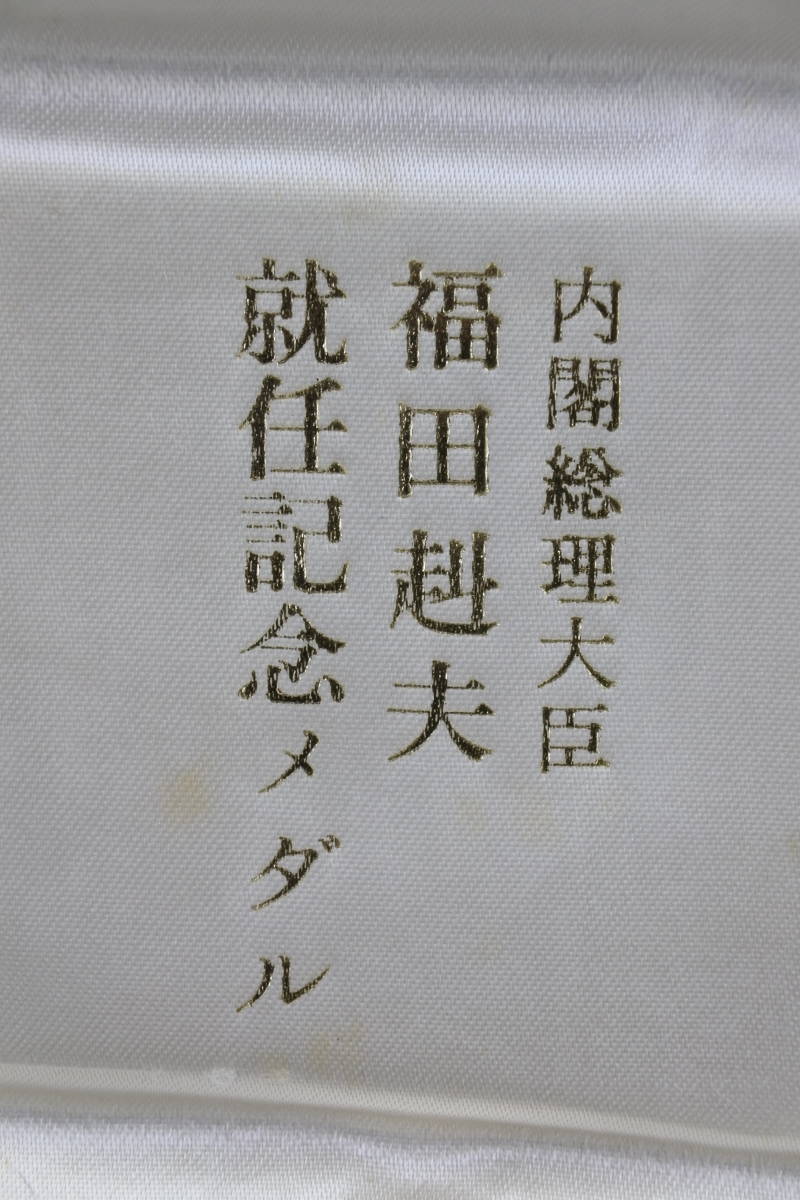 内閣総理大臣
福田赳夫
就任記念メダル